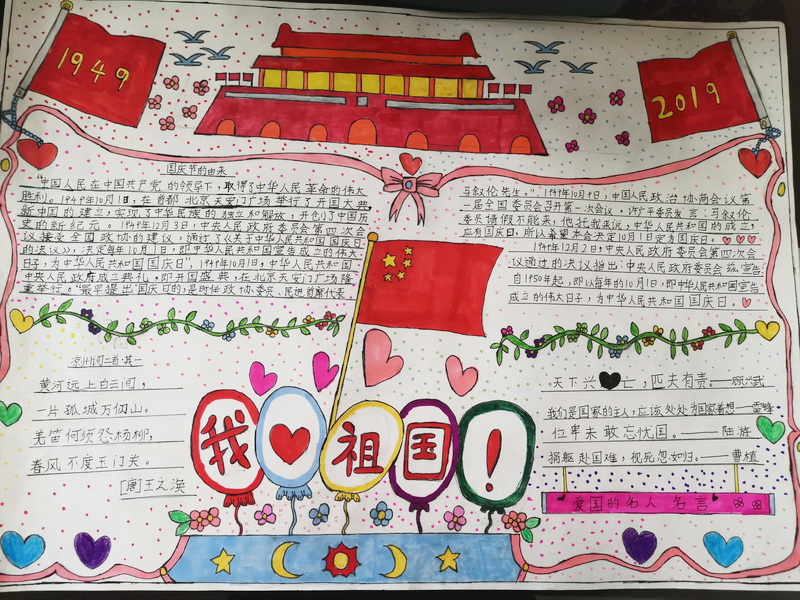 1949
2019
国庆节的由来
“中国人民在中国共产党的领导下，取得了中华人民革命的伟大
胜利。1949年10月1日，在首都北京天安门广场举行了开国大典，
新中国的建立，实现了中华民族的独立和解放，开创了中国历
史的新纪元。1949年12月3日，中央人民政府委员会第四次会
议接受全国政协的建议，通过了《关于中华人民共和国国庆日
的决议》，决定每年10月1日，即中华人民共和国宣告成立的伟大
日子，为中华人民共和国国庆日”，1949年10月1日，中华人民共和国
中央人民政府成立典礼，即开国盛典，在北京天安门广场隆
重举行。“最早提出‘国庆日’的，是时任政协委员、民进首席代表
马叙伦先生。”1949年10月9日，中国人民政治协商会议第
一届全国委员会召开第一次会议。许广平委员发言：马叙伦
委员请假不能来，他托我来说，中华人民共和国的成立，
应有国庆日，所以希望本会决定10月1日定为国庆日。
1949年12月2日，中央人民政府委员会第四次会
议通过的决议指出：中央人民政府委员会宣告
自1950年起，即以每年的10月1日，即中华人民共和国宣告
成立的伟大日子，为中华人民共和国国庆日。
凉州词二首·其一
黄河远上白云间，
一片孤城万仞山。
羌笛何须怨杨柳，
春风不度玉门关。
[唐]王之涣
我祖国！
天下兴亡，匹夫有责——顾炎武
我们是国家的主人，应该处处为国家着想——雷锋
位卑未敢忘忧国。——陆游
捐躯赴国难，视死忽如归。——曹植
爱国的名人名言